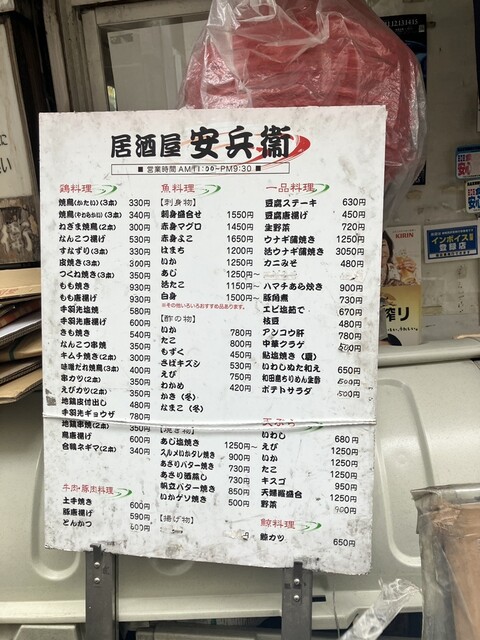 居酒屋 安兵衛
■ 営業時間 AM11:00~PM9:30 ■
鶏料理
焼鳥(かたい)(3本) 330円
焼鳥(やわらかい)(3本) 340円
ねぎま焼鳥(2本) 300円
なんこつ揚げ 530円
すなずり(3本) 330円
皮焼き(3本) 300円
つくね焼き(3本) 350円
もも焼き 930円
もも唐揚げ 930円
手羽先塩焼き 580円
手羽先唐揚げ 600円
きも焼き 540円
なんこつ焼き(3本) 350円
キムチ焼き(2本) 300円
味噌だれ焼鳥(3本) 400円
串カツ(2本) 350円
えびカツ(2本) 350円
地鶏皮付出し 480円
手羽先ギョウザ 780円
地鶏串焼(2本) 350円
鳥唐揚げ 600円
合鴨ネギマ(2本) 340円
牛肉・豚肉料理
土手焼き 600円
豚唐揚げ 590円
とんかつ 600円
魚料理
[刺身物]
刺身盛合せ 1550円
赤身マグロ 1450円
赤身よこ 1650円
はまち 1200円
いか 1250円
あじ 1250円~
活たこ 1150円~
白身 1500円~
※その他いろいろおすすめ品あります。
[酢の物]
いか 780円
たこ 800円
もずく 450円
さばキズシ 530円
えび 750円
わかめ 420円
かき(冬)
なまこ(冬)
[焼き物]
あじ塩焼き 1250円~
スルメいかタレ焼き 900円
あさりバター焼き 730円
あさり酒蒸し 730円
帆立バター焼き 850円
いかゲソ焼き 500円
[揚げ物]
円
一品料理
豆腐ステーキ 630円
豆腐唐揚げ 450円
生野菜 720円
ウナギ蒲焼き 1250円
活ウナギ蒲焼き 3050円
カニみそ 480円
ハマチあら焼き 900円
豚角煮 730円
エビ塩茹で 670円
枝豆 480円
アンコウ肝 780円
中華クラゲ 500円
鮎塩焼き(夏)
いわしぬた和え 650円
和田島ちりめん生酢 600円
ポテトサラダ 500円
天ぷら
いわし 680円
えび 950円
いか 1250円
たこ 1250円
キスゴ 950円
天婦羅盛合 1250円
野菜 900円
鯨料理
鯨カツ 650円
KIRIN
搾り
インボイス
登録店